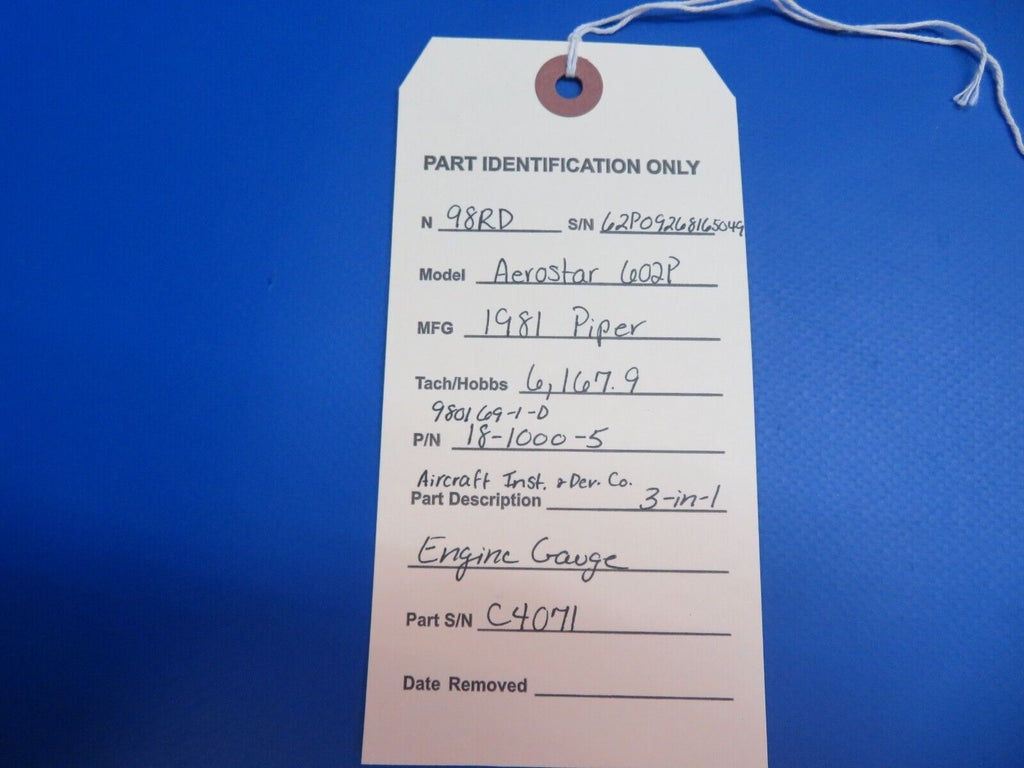 PART IDENTIFICATION ONLY
N 98RD S/N 62P09268165049
Model Aerostar 602P
MFG 1981 Piper
Tach/Hobbs 6,167.9
980169-1-D
P/N 18-1000-5
Aircraft Inst. & Dev. Co.
Part Description 3-in-1
Engine Gauge
Part S/N C4071
Date Removed